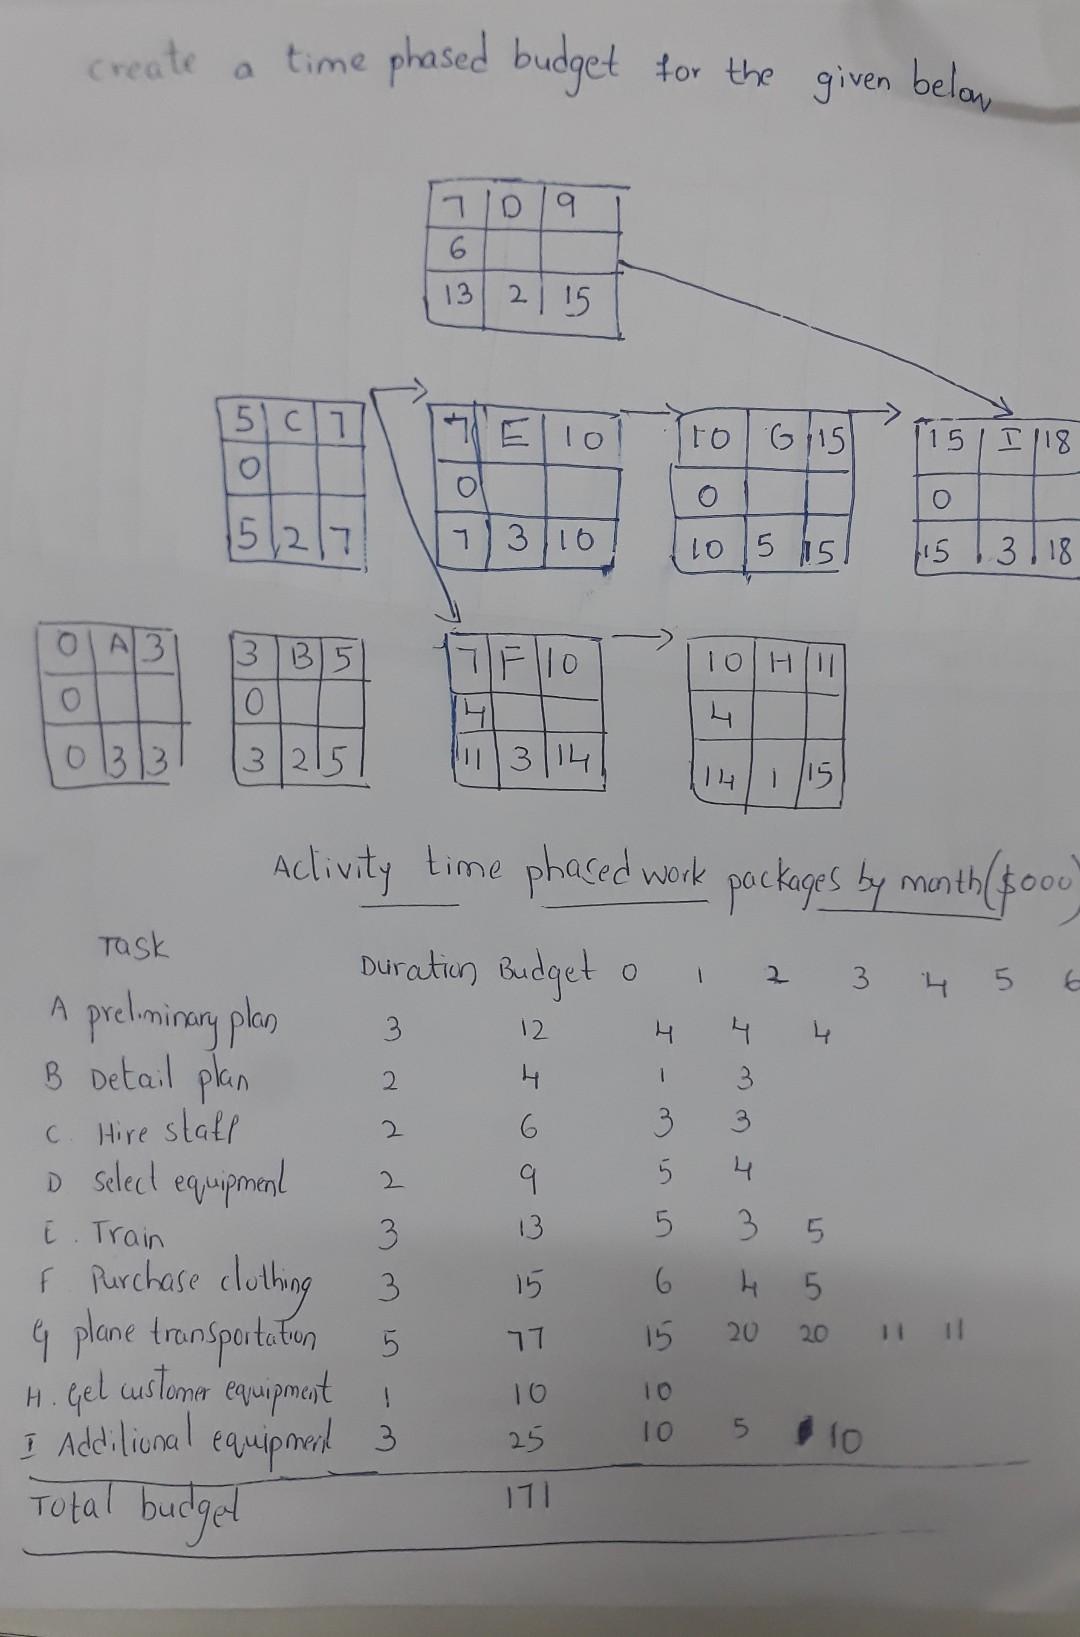 create a time phased budget for the given below
7 D 9
6
13 2 15
5 C 7
0
5 2 7
7 E 10
0
7 3 10
10 G 15
0
10 5 15
15 I 18
0
15 3 18
0 A 3
0
0 3 3
3 B 5
0
3 2 5
7 F 10
4
11 3 14
10 H 11
4
14 1 15
Activity time phased work packages by month($000)
Task Duration Budget 0 1 2 3 4 5 6
A preliminary plan 3 12 4 4 4
B Detail plan 2 4 1 3
C. Hire staff 2 6 3 3
D Select equipment 2 9 5 4
E. Train 3 13 5 3 5
F Purchase clothing 3 15 6 4 5
G plane transportation 5 77 15 20 20 11 11
H. Get customer equipment 1 10 10
I Additional equipment 3 25 10 5 10
Total budget 171